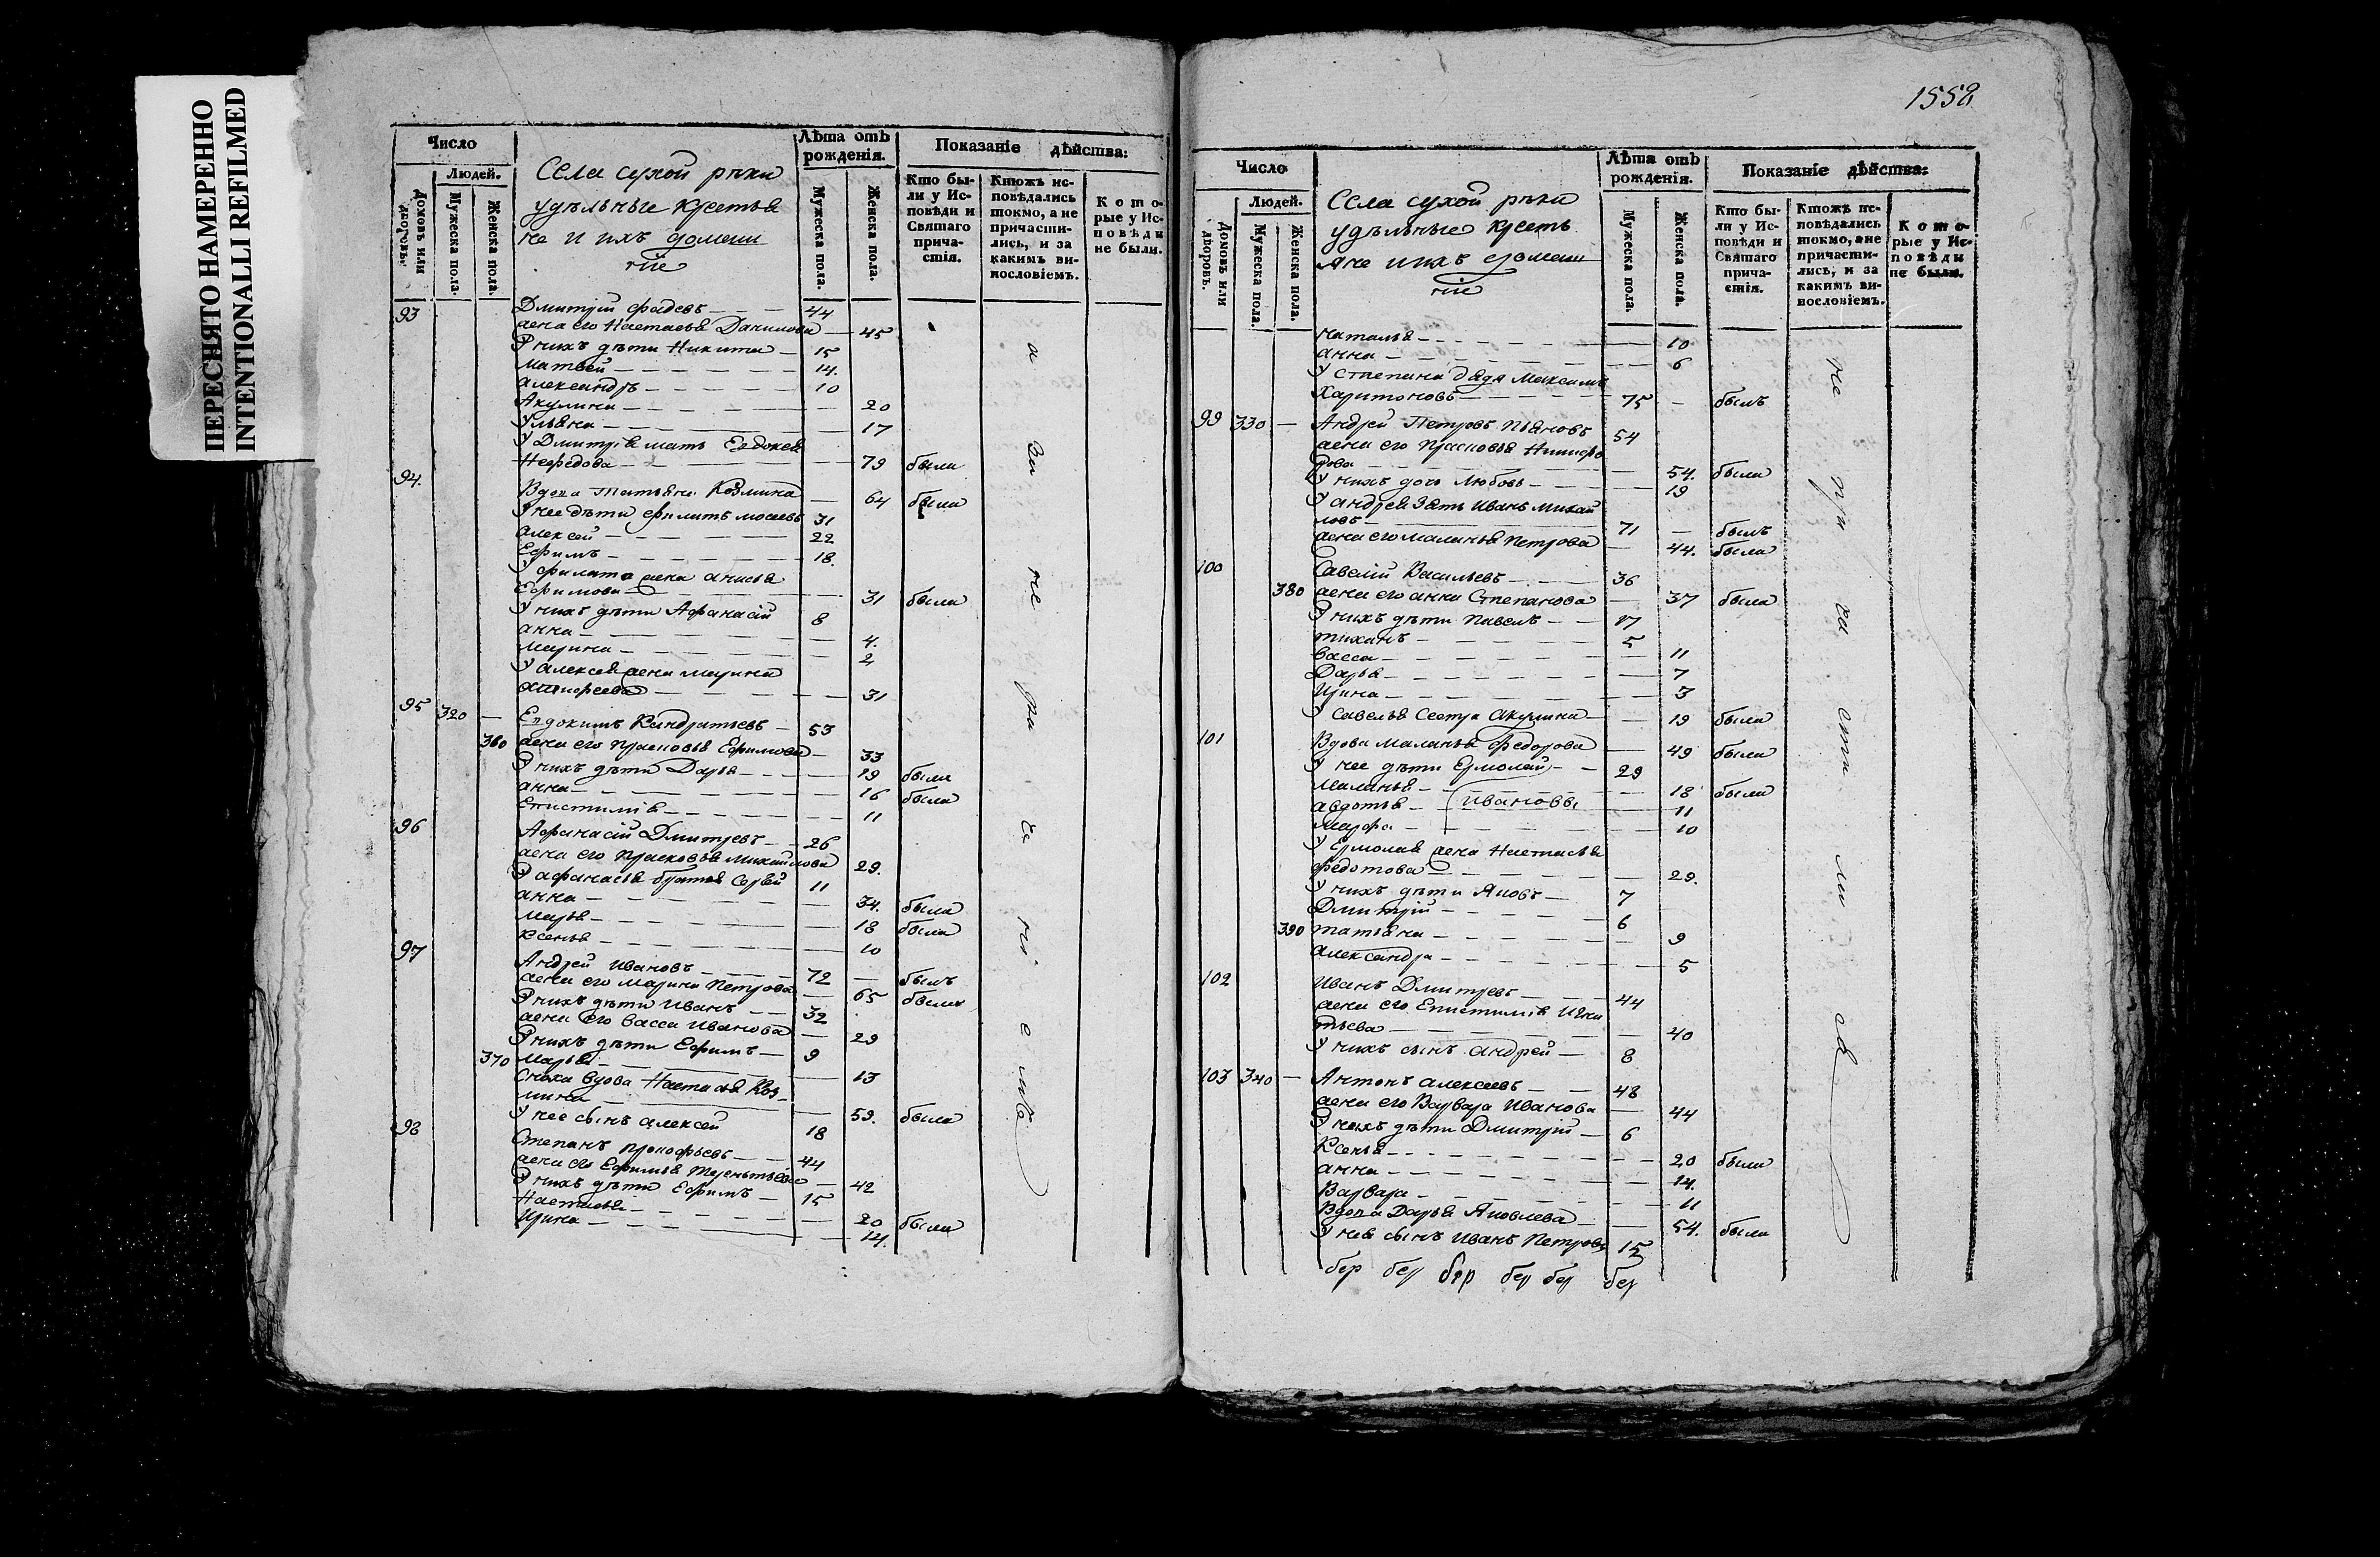 ПЕРЕСНЯТО НАМЕРЕННО
INTENTIONALLI REFILMED
Число
Людей.
Домовъ или дворовъ.
Мужеска пола.
Женска пола.
Села сухой рѣки
удѣльные крестья
не и ихъ домаш
ніе
Лѣта отъ рожденія.
Мужеска пола.
Женска пола.
Показаніе дѣйства:
Кто бы-
ли у Ис-
повѣди и
Святаго
прича-
стія.
Ктожъ ис-
повѣдались
токмо, а не
причасти-
лись, и за
какимъ ви-
нословіемъ.
Кото-
рые у Ис-
повѣди
не были.
93 Дмитрій Фадеевъ 44
жена его Настасья Данилова 45
У нихъ дѣти Никита 15
Матвей 14.
александръ 10
Акулина 20
Ульяна 17
У Дмитрія мать Евдокея
Нефедова 79 была
94. Вдова Татьяна Козмина 64 была
У нее дѣти Филатъ мосеевъ 31
алексей 22
Ефимъ 18.
У филата жена анисья
Ефимова 31 была
У нихъ дѣти Афанасій 8
анна 4.
марина 2
У алексея жена марина
31
95 320 — Евдокимъ Кандратьевъ 53
360 жена его прасковья Ефимова 33
У нихъ дѣти Дарья 19 была
анна 16 была
Епистимія 11
96 Афанасій Дмитревъ 26
жена его прасковья михайлова 29.
У афанасья братья Сергей 11
анна 34. была
марья 18 была
ксенья 10
97 Андрей Ивановъ 72 — былъ
жена его марина петрова 65 была
У нихъ дѣти Иванъ 32
жена его васса Иванова 29
У нихъ дѣти Ефимъ 9
370 Марья 13
Сноха вдова Настасья Коз-
мина 59. была
У нее сынъ алексей 18
98 Степанъ прокофьевъ 44
жена его Ефимья Терентьева 42
У нихъ дѣти Ефимъ 15
Настасья 20 была
Ирина 14.
1558
Число
Людей.
Домовъ или дворовъ.
Мужеска пола.
Женска пола.
Села сухой рѣки
удѣльные кресть
яне и ихъ домаш
ніе
Лѣта отъ рожденія.
Мужеска пола.
Женска пола.
Показаніе дѣйства:
Кто бы-
ли у Ис-
повѣди и
Святаго
прича-
стія.
Ктожъ ис-
повѣдались
токмо, а не
причасти-
лись, и за
какимъ ви-
нословіемъ.
Кото-
рые у Ис-
повѣди
не были.
наталья 10
анна 6
У степана дядя Максимъ
Харитоновъ 75 — былъ
99 330 — Андрей Петровъ пьяновъ 54
жена его прасковья Никифо
рова 54. была
У нихъ дочь Любовь 19
У андрея зять Иванъ михай
ловъ 71 — былъ
жена его маланья петрова 44. была
100 Савелій Васильевъ 36
380 жена его анна Степанова 37 была
У нихъ дѣти павелъ 17
тиханъ 5
васса 11
Дарья 7
Ирина 3
У савелья сестра акулина 19 была
101 Вдова маланья федорова 49 была
У нее дѣти Ермолай 29
маланья 18 была
авдотья Ивановы 11
марфа 10
У Ермолая жена Настасья
федотова 29.
У нихъ дѣти Яковъ 7
Дмитрій 6
390 татьяна 9
александра 5
102 Иванъ Дмитревъ 44
жена его Епистимія Игна
тьева 40
У нихъ сынъ андрей 8
103 340 — Антонъ алексеевъ 48
жена его Варвара Иванова 44
У нихъ дѣти Дмитрій 6
Ксенья 20 была
анна 14.
Варвара 11
Вдова Дарья Яковлева 54. была
У нея сынъ Иванъ Петровъ 15
бер бер бер бер бер бер